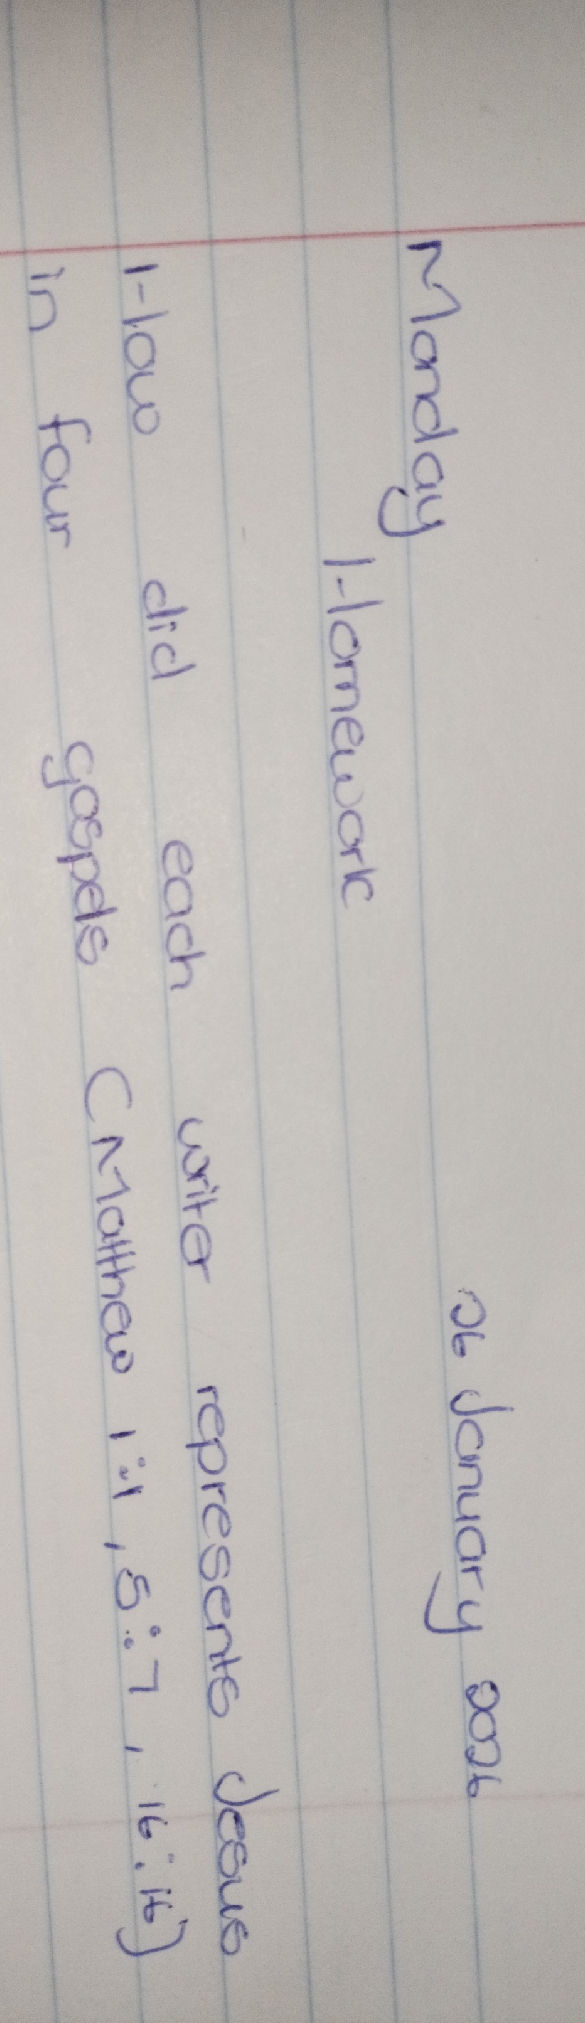 Monday 26 January 2026
Homework
How did each writer represents Jesus
in four gospels (Matthew 1:1, 5:7, 16:16)